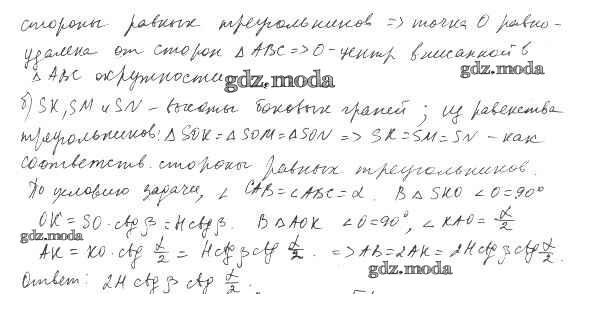 стороны равных треугольников => точка O равно-
удалена от сторон △ABC => O - центр вписанной в
△ABC окружности.
gdz.moda
gdz.moda
б) SK, SM и SN - высоты боковых граней; из равенства
треугольников: △SOK = △SOM = △SON => SK = SM = SN - как
соответств. стороны равных треугольников.
По условию задачи, ∠CAB = ∠ABC = α. В △SKO ∠O = 90°
OK = SO · ctg β = H ctg β. В △AOK ∠O = 90°, ∠KAO = α/2
gdz.moda
AK = KO · ctg α/2 = H ctg β ctg α/2. => AB = 2AK = 2H ctg β ctg α/2.
gdz.moda
Ответ: 2H ctg β ctg α/2.